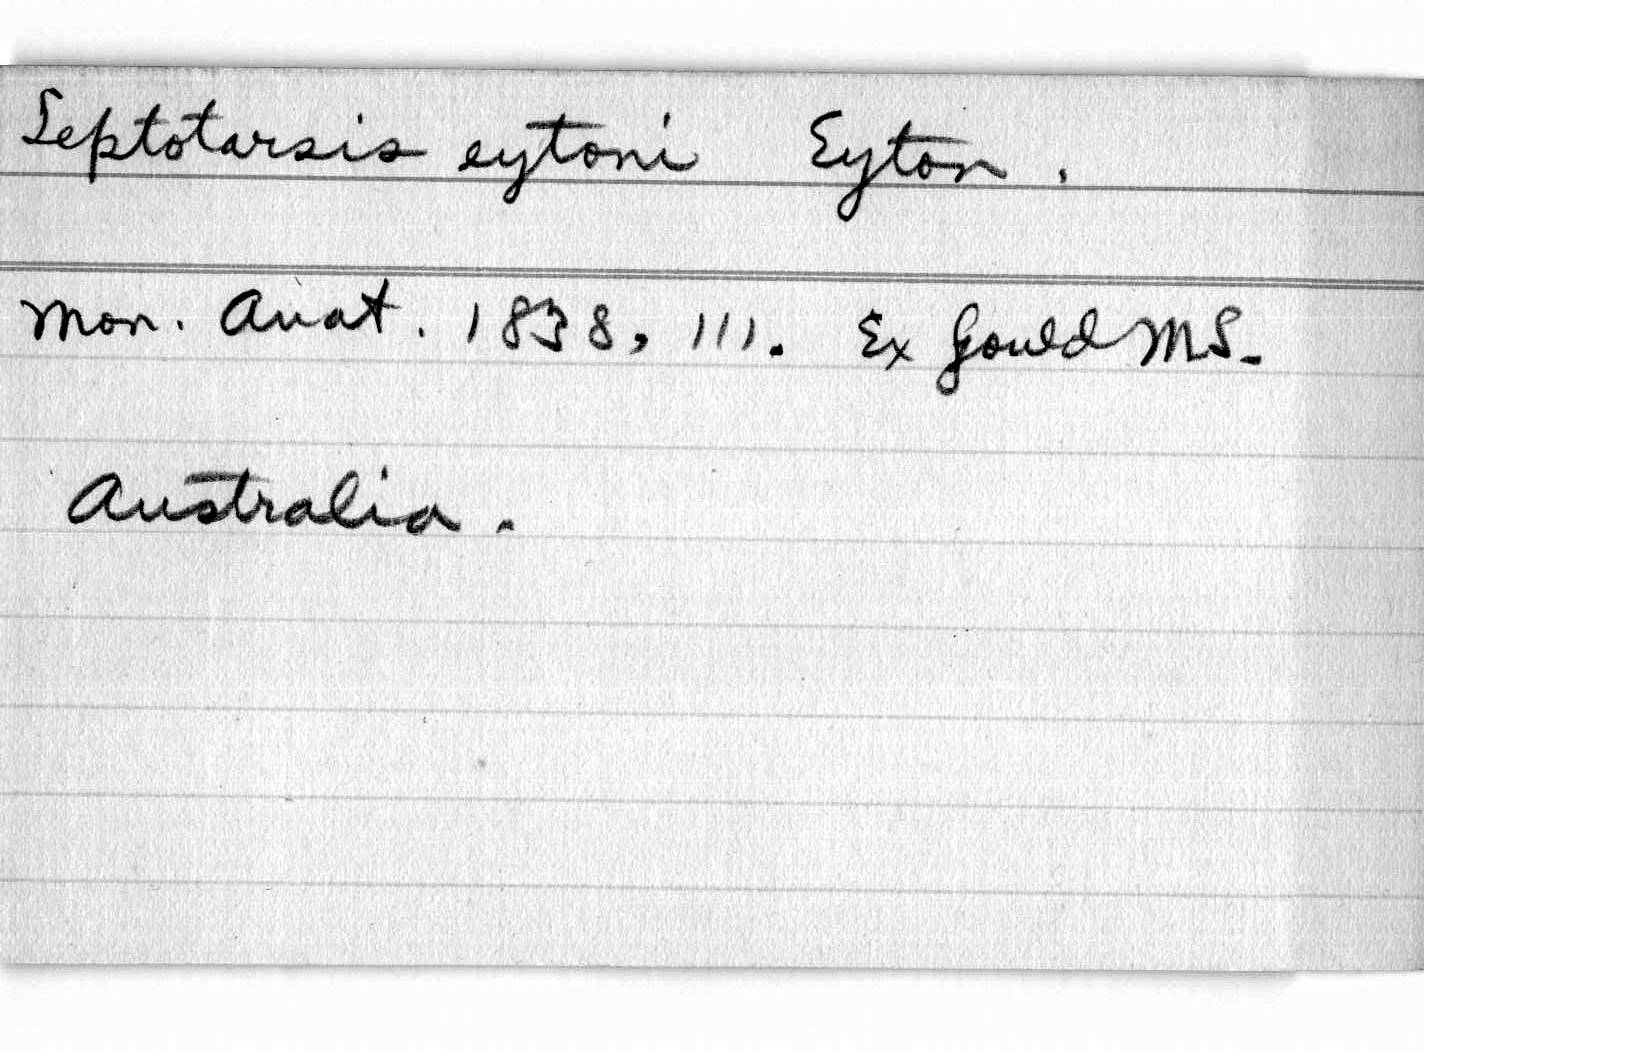 Leptotarsis eytoni Eyton.
Mon. Anat. 1838, 111. Ex Gould MS.
Australia.